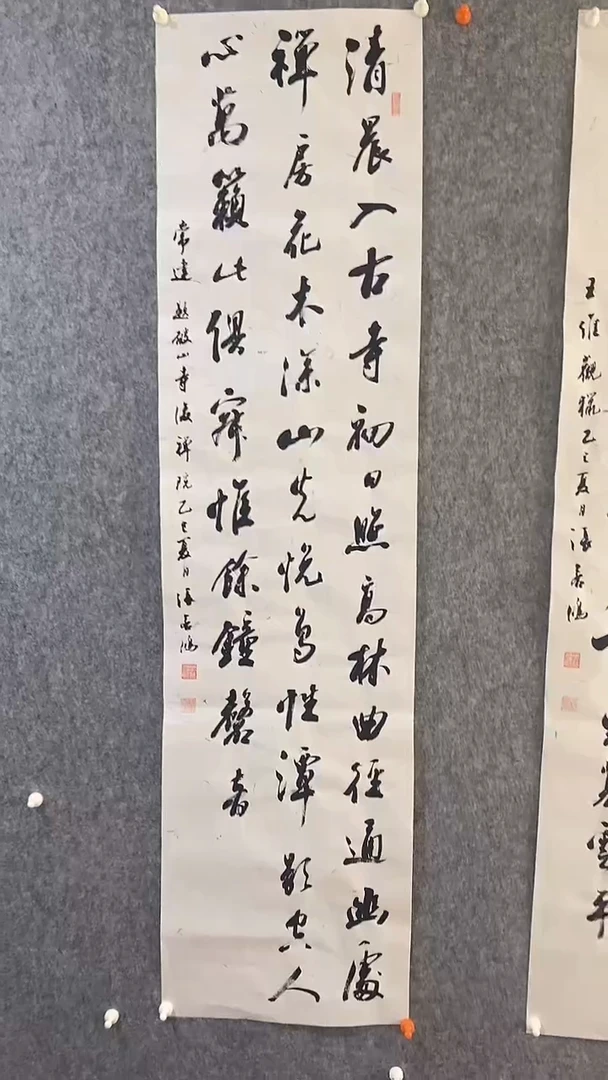 暮雲平
王維觀獵乙巳夏月
清晨入古寺初日照高林曲徑通幽處
禪房花木深山光悅鳥性潭影空人
心萬籟此俱寂惟餘鐘磬音
常建題破山寺後禪院乙巳夏月